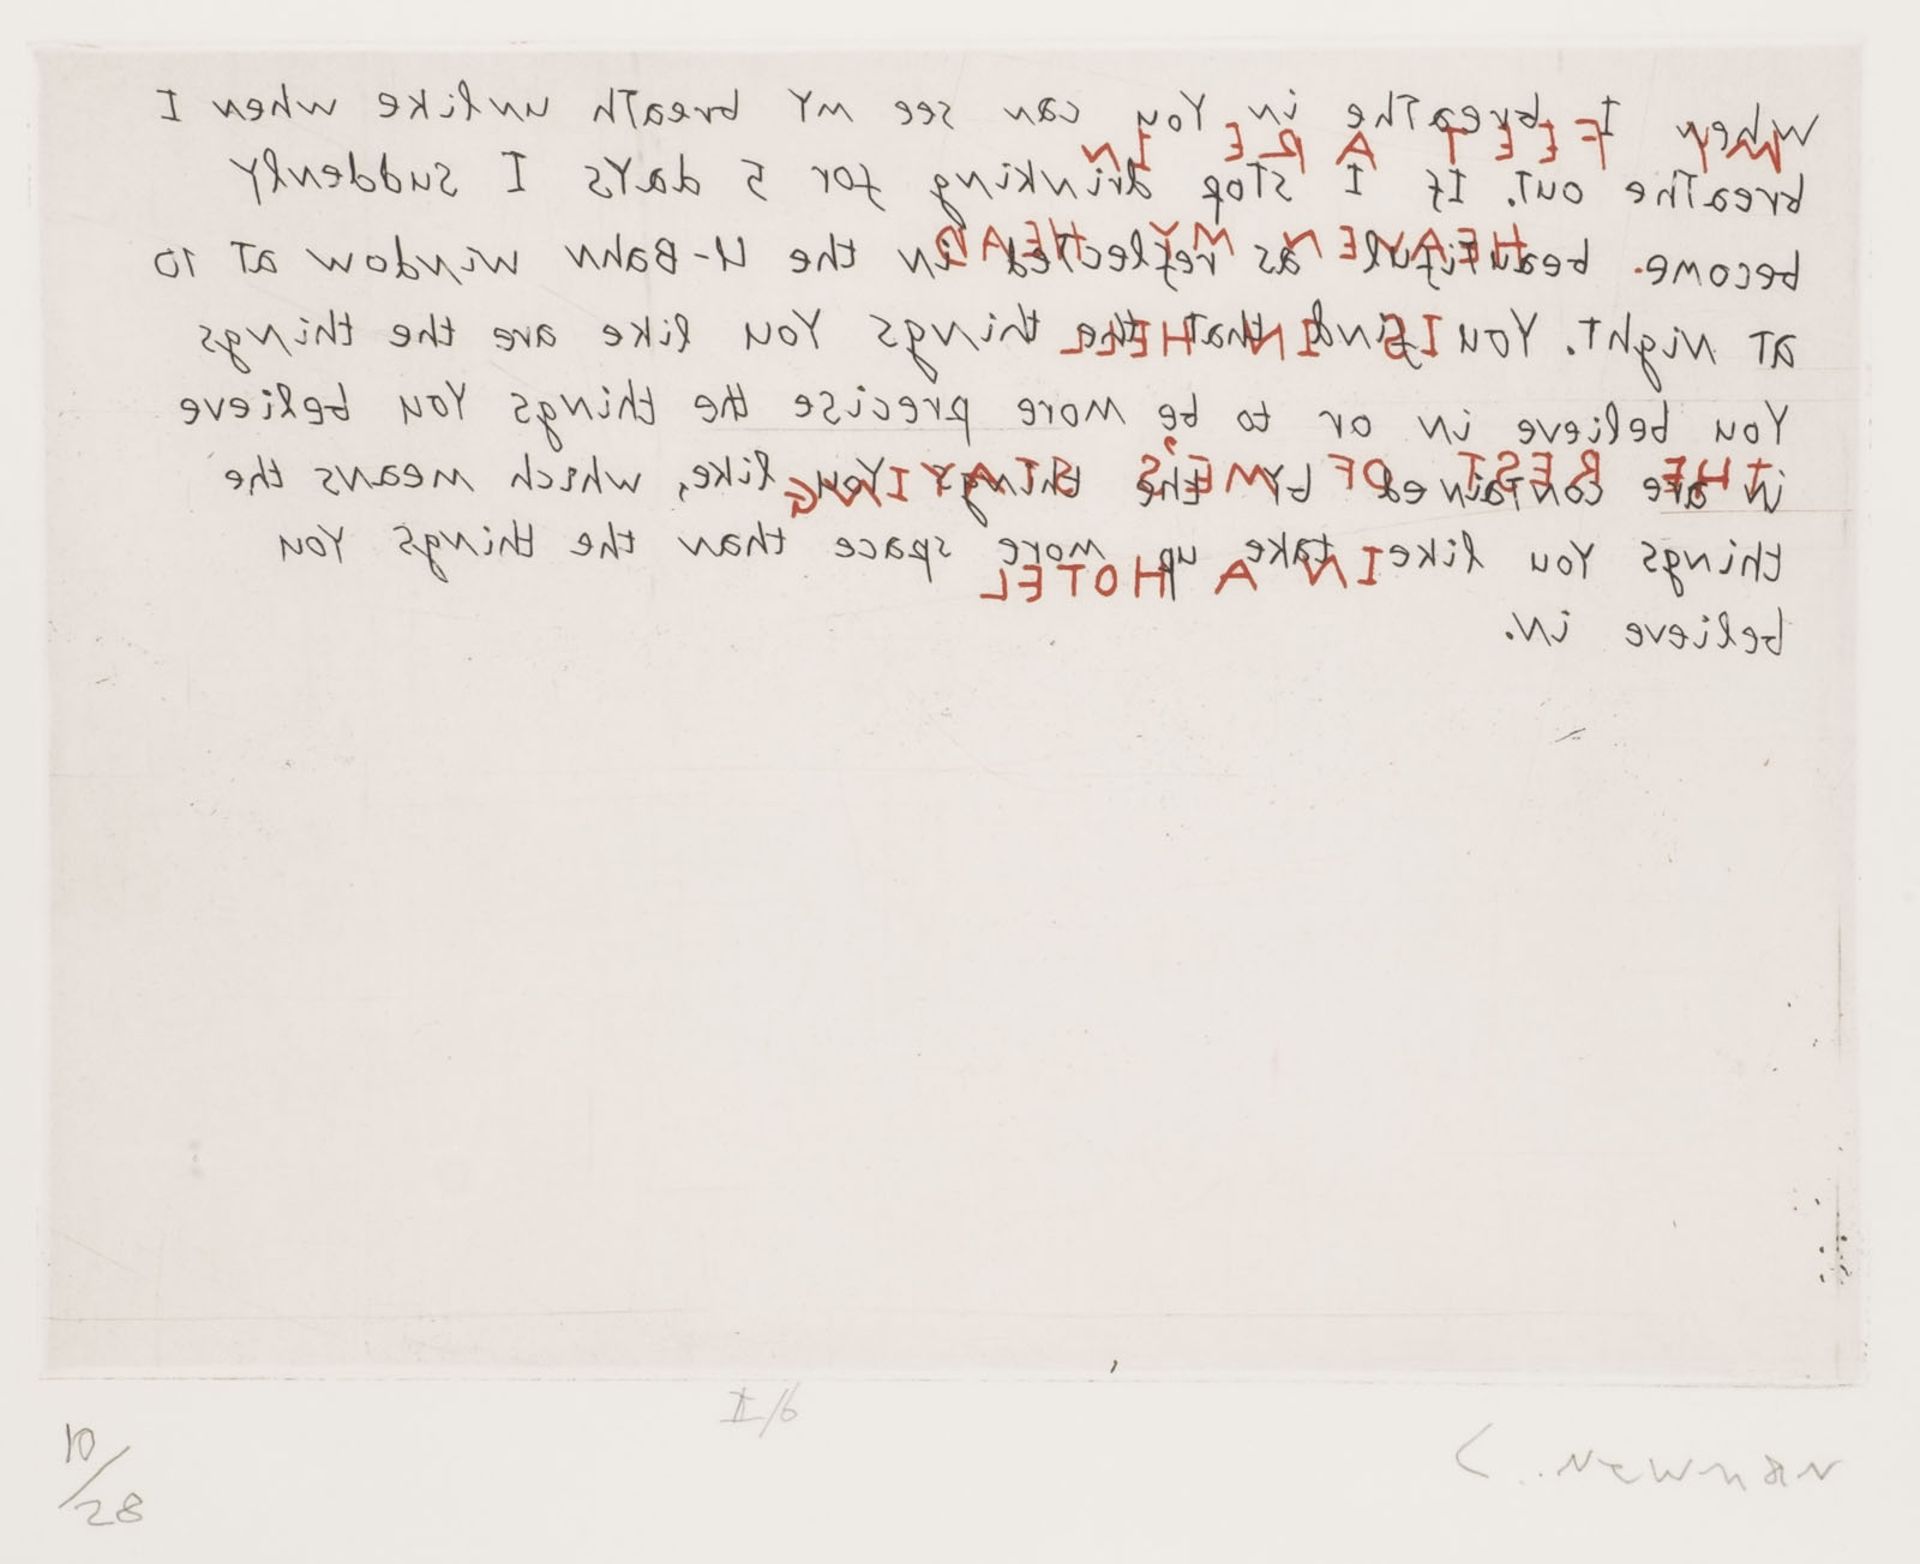 When I breathe in You can see my breath unlike when I
breathe out. If I stop drinking for 5 days I suddenly
become beautiful as reflected in the U-Bahn window at 10
at night. You find that the things You like are the things
You believe in or to be more precise the things You believe
in are contained by the things You like, which means the
things You like take up more space than the things You
believe in.
MY FEET ARE IN
HEAVEN MY HEAD
IS IN HELL
THE REST OF ME'S STAYING
IN A HOTEL
II/6
10/28
C. Newman